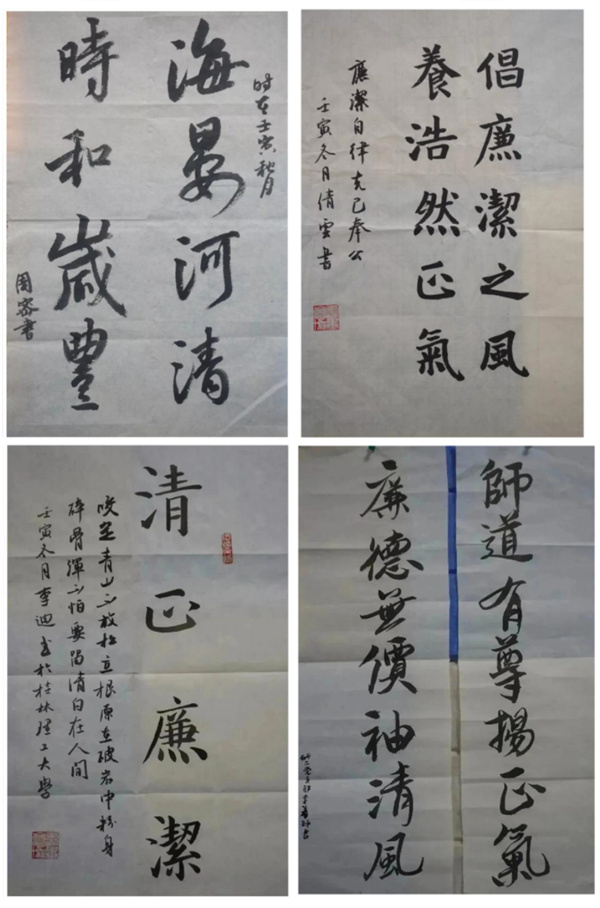 海晏河清
時和歲豐
時在壬寅秋月
周密書
倡廉潔之風
養浩然正氣
廉潔自律克己奉公
壬寅冬月倩雲書
清正廉潔
咬定青山不放松立根原在破岩中粉身
碎骨渾不怕要留清白在人間
壬寅冬月李迪書於桂林理工大學
師道有尊揚正氣
廉德無價袖清風